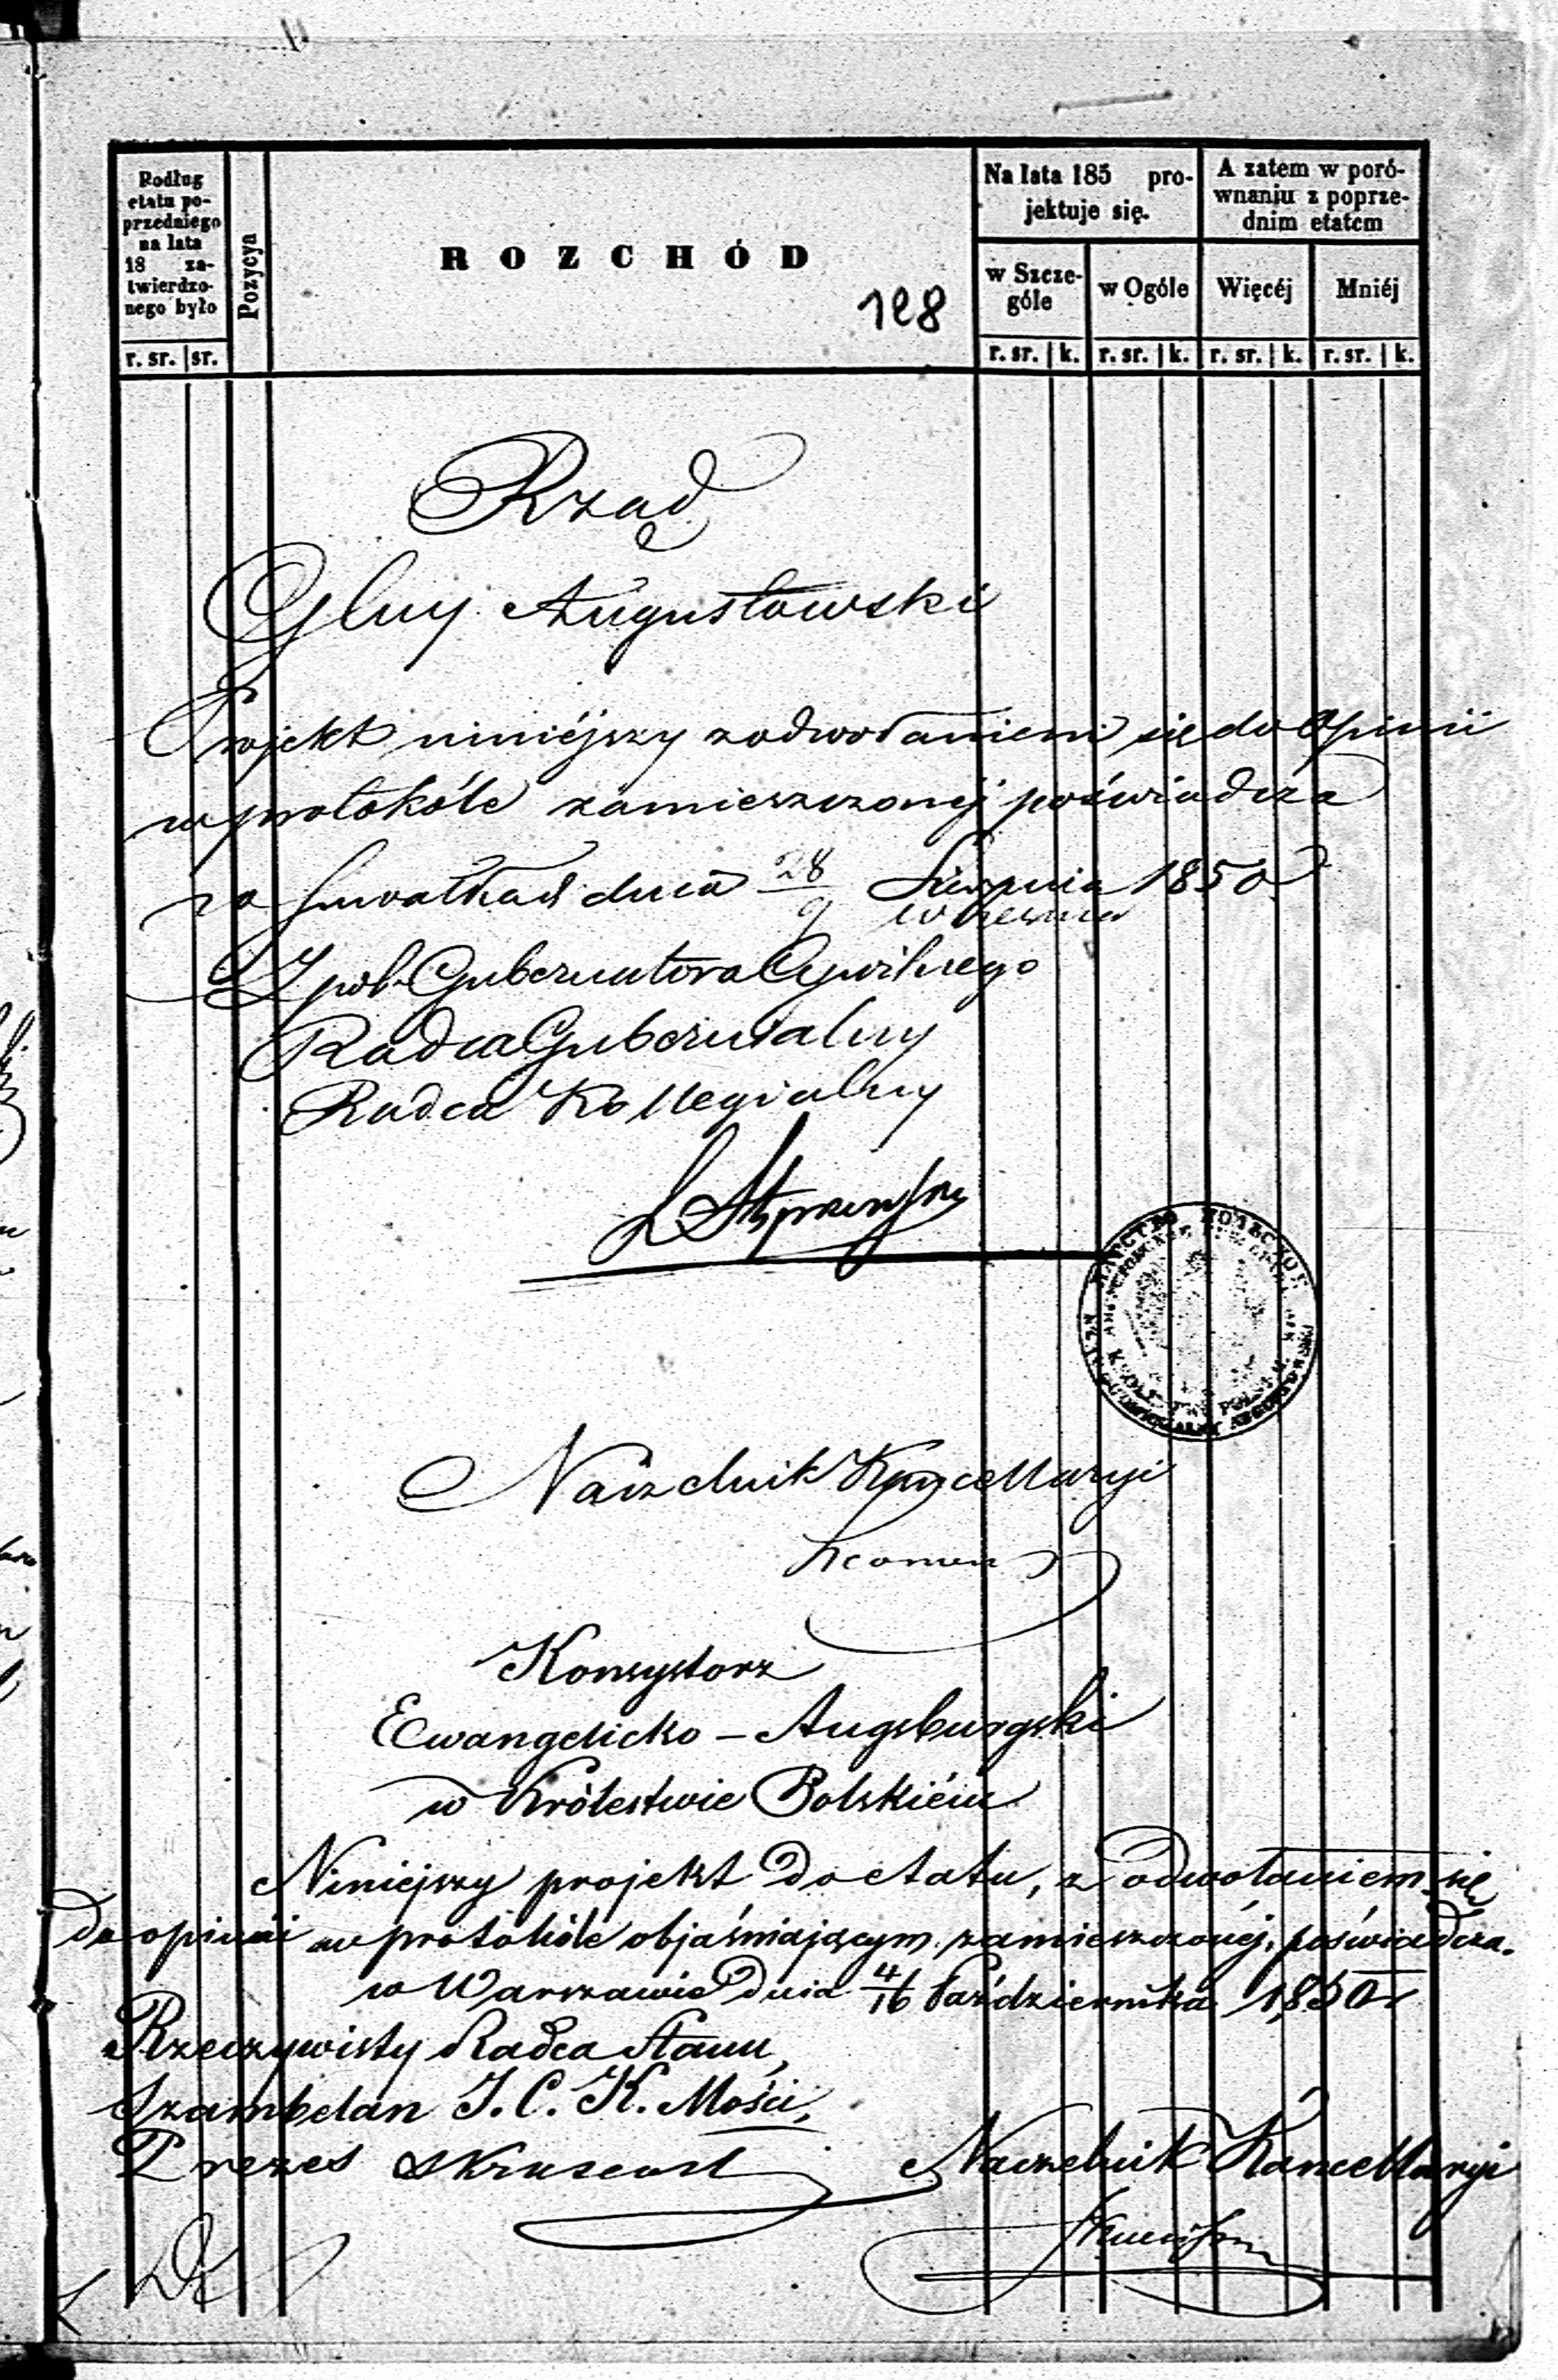 Podług
etatu po-
przedniego
na lata
18 za-
twierdzo-
nego było
r. sr. sr.
Pozycya
ROZCHÓD
128
Na lata 185 pro-
jektuje się.
w Szcze-
góle
w Ogóle
r. sr. k. r. sr. k.
A zatem w poró-
wnaniu z poprze-
dnim etatem
Więcéj Mniéj
r. sr. k. r. sr. k.
Rząd
Glny Augustowski
Projekt niniéjszy z odwołaniem się do Opinii
w protokóle zamieszczonéj poświadcza
w Suwałkach dnia 28/9 Sierpnia/Września 1850
Z pol. Gubernatora Cywilnego
Radca Gubernialny
Radca Kollegialny
Naczelnik Kancellaryi
Konsystorz
Ewangelicko – Augsburgski
w Królestwie Polskiém
Niniejszy projekt do etatu, z odwołaniem się
do opinii w protokóle objaśniającym zamieszczonéj, poświadcza.
w Warszawie dnia 4/16 Października 1850 r.
Rzeczywisty Radca Stanu,
Szambelan J. C. K. Mości,
Prezes
Naczelnik Kancellaryi